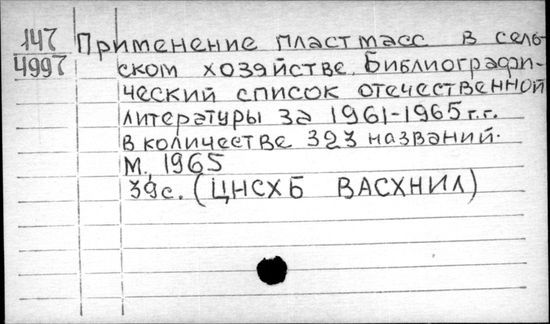 147
4997
Применение пластмасс в сель-
ском хозяйстве. Библиографи-
ческий список отечественной
литературы за 1961-1965 г.г.
в количестве 323 названий.
М., 1965
39с. (ЦНСХБ ВАСХНИЛ)